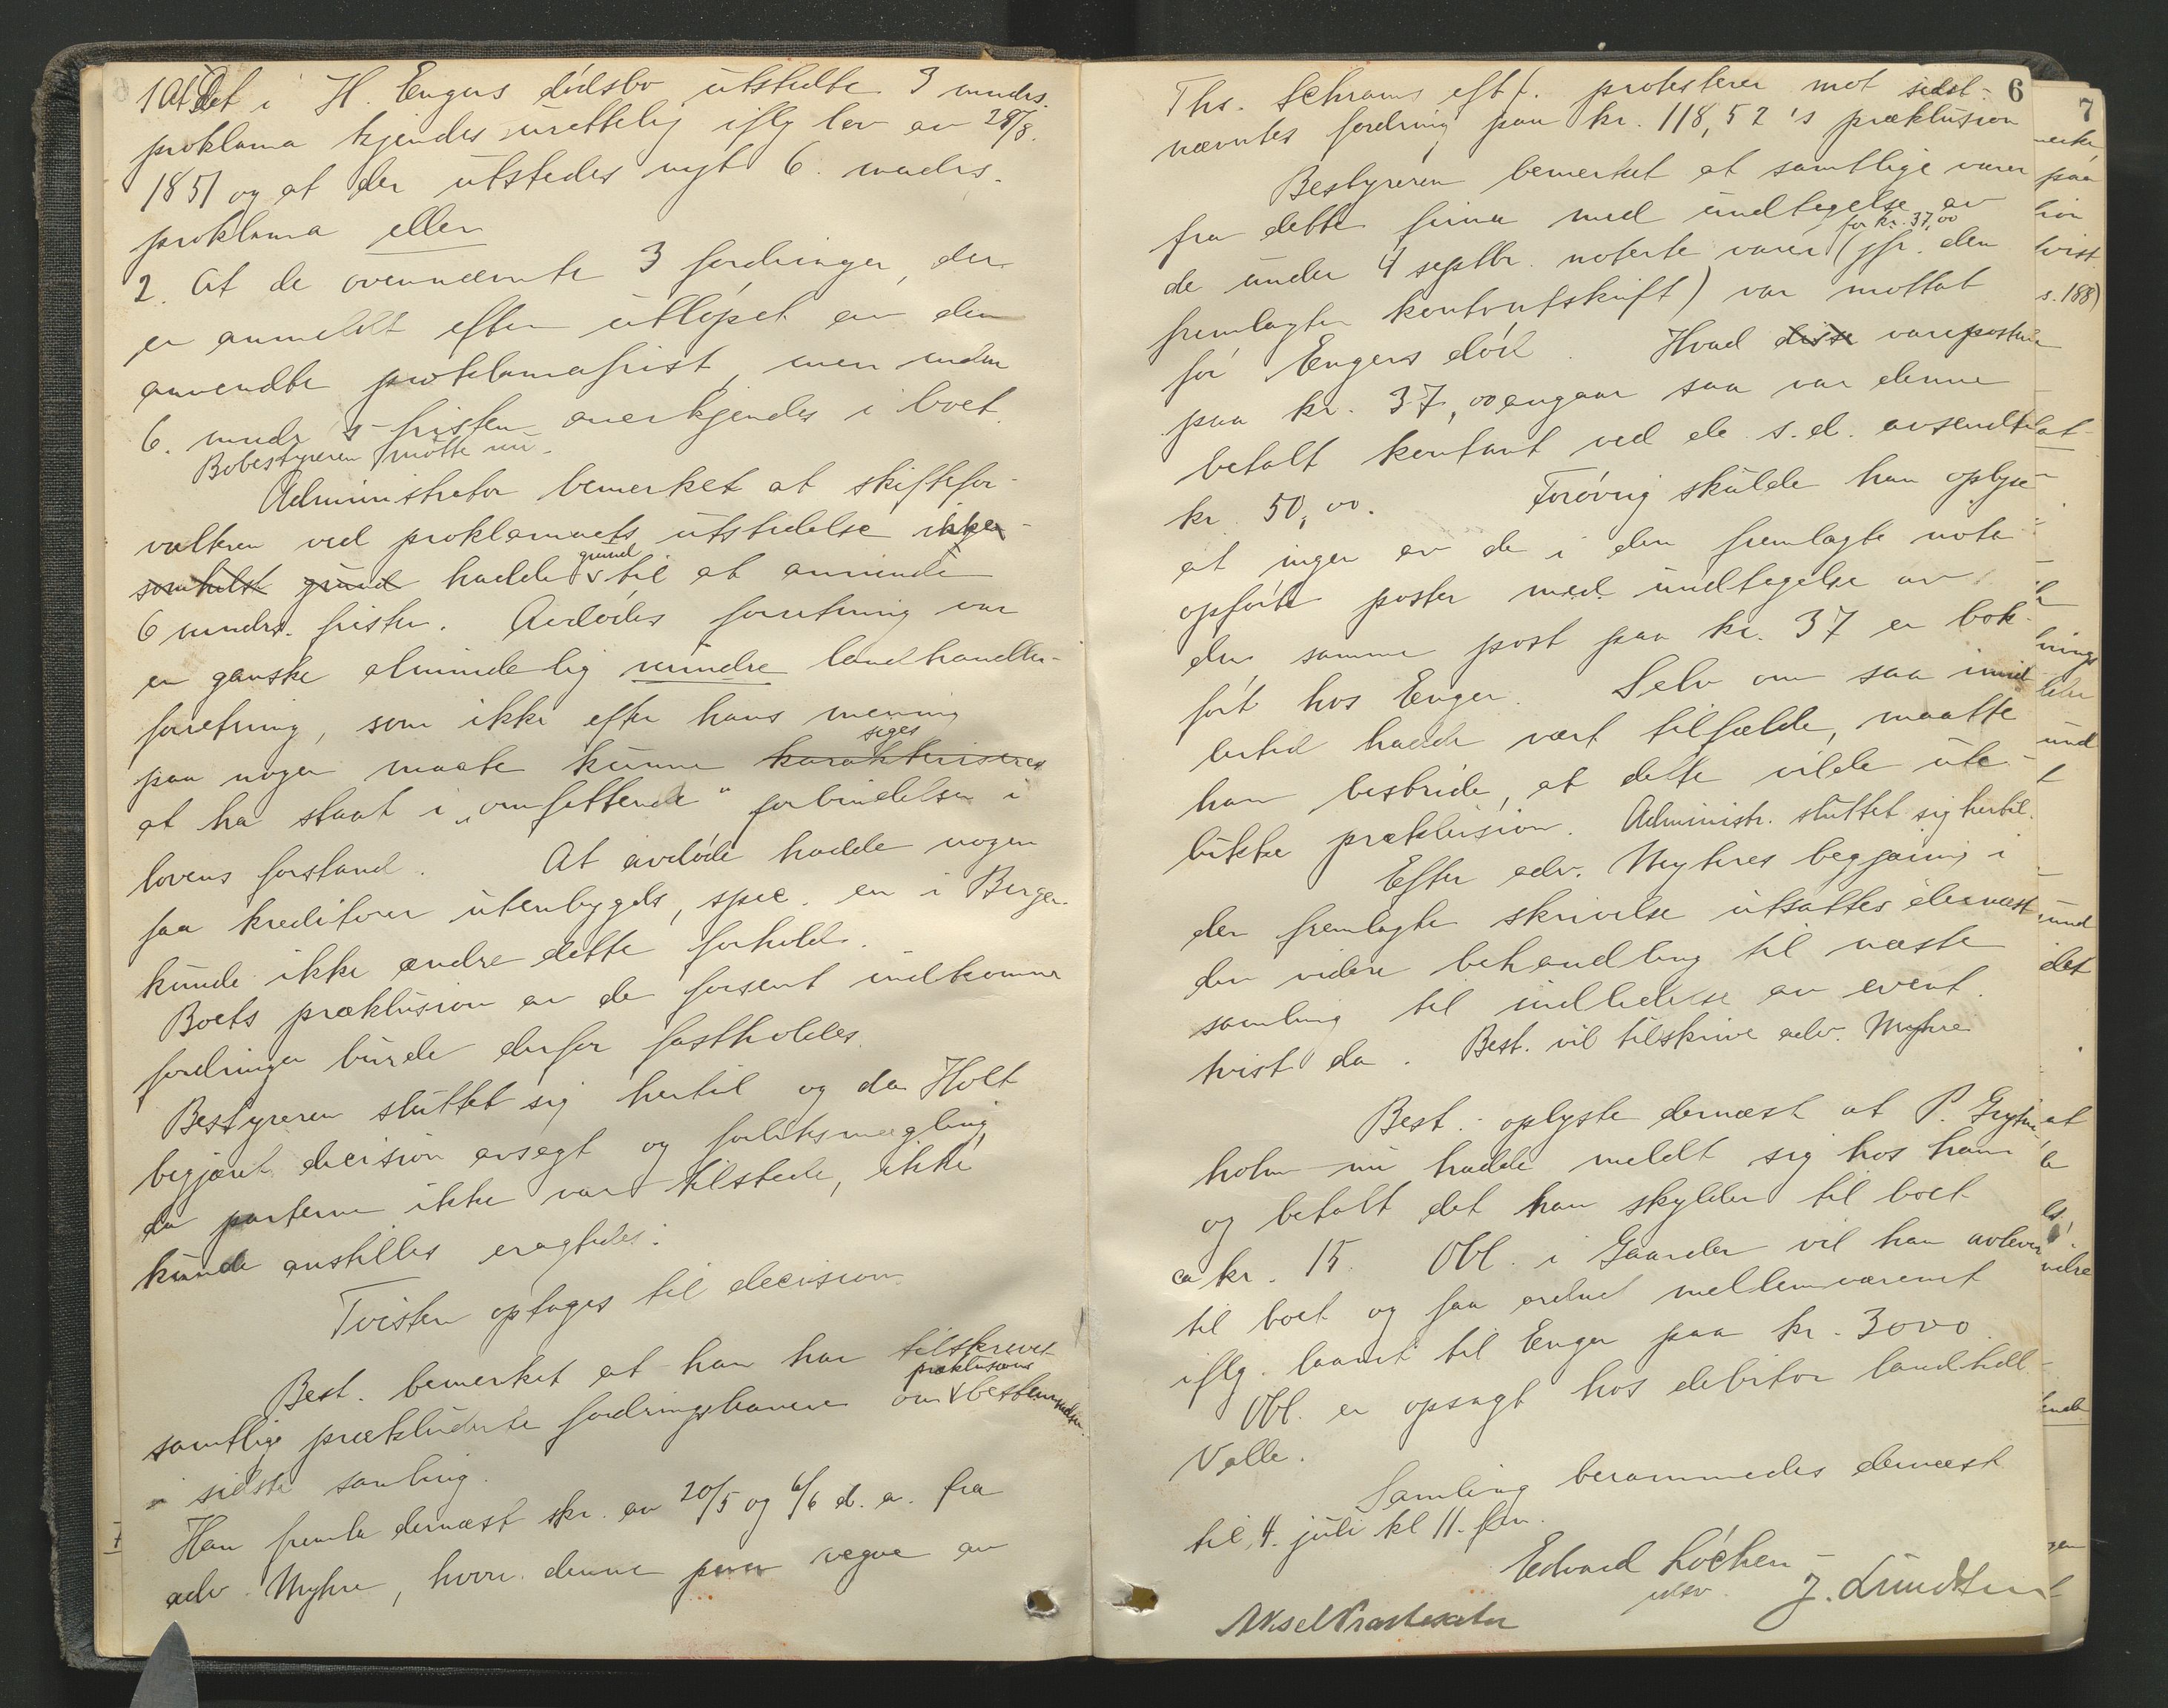 1 At det i H. Engers dödsbo utstedte 3 mndrs.
proklama kjendes urettelig iflg lov av 28/8.
1851 og at der utstedes nyt 6. mndrs.
proklama eller
2. At de ovennævnte 3 fordringer, der
er anmeldt efter utlöpet av den
anvendte proklamafrist, men inden
6. mndr s fristen anerkjendes i boet.
Bobestyreren mötte nu.
Administrator bemerket at skiftefor-
valteren ved proklamaets utstedelse ikke
somhelst grund hadde grund til at anvende
6 mndrs. fristen. Avdödes forretning var
en ganske almindelig mindre landhandler-
forretning, som ikke efter hans mening
paa nogen maate kunne karakteriseres siges
at ha staat i "omfattende" forbindelser i
lovens forstand. At avdöde hadde nogen
faa kreditorer utenbygds, spec. en i Bergen
kunde ikke ændre dette forhold.
Boets præklusion av de forsent indkomne
fordringer burde derfor fastholdes.
Bestyreren sluttet sig hertil og da Holt
begjæret decision avsagt og forliksmægling,
da parterne ikke var tilstede, ikke
kunde anstilles eragtedes:
Tvisten optages til decision.
Best. bemerket at han har tilskrevet
samtlige prækluderte fordringshavere om præklusions bestemmelsen
i sidste samling.
Han fremla dernæst skr. av 20/5 og 6/6 d. a. fra
adv. Myhre, hvori denne paa vegne av
6
Ths. Schrams eftf. protesterer mot sidst-
nævntes fordring paa kr. 118,52 's præklusion
Bestyreren bemerket at samtlige varer
fra dette firma med undtagelse av
de under 4 septbr. noterte varer for kr. 37,00 (jfr. den
fremlagte kontoutskrift) var mottat
för Engers död. Hvad disse vareposten
paa kr. 37,00 angaar saa var denne
betalt kontant ved de s.d. avsendte
kr. 50,00. Forövrig skulde han oplyse
at ingen av de i den fremlagte nota
opförte poster med undtagelse av
den samme post paa kr. 37 er bok-
fört hos Enger. Selv om saa imid-
lertid hadde vært tilfælde, maatte
han bestride, at dette vilde ute-
lukke præklusion. Administr. sluttet sig hertil.
Efter adv. Myhres begjæring i
den fremlagte skrivelse utsattes dernæst
den videre behandling til næste
samling til indledelse av event.
tvist da. Best. vil tilskrive adv. Myhre
Best. oplyste dernæst at P.
holm nu hadde meldt sig hos ham
og betalt det han skylder til boet
ca kr. 15. Obl. i Gaarder vil han avlevere
til boet og faa ordnet mellemværendet
iflg. laanet til Enger paa kr. 3000.
Obl. er opsagt hos debitor landhdl.
Valle.
Samling berammedes dernæst
til 4. juli kl 11. fm.
Edvard Löchen
J. Lundsten
7
paa
tvist
s. 188)
und
det
at